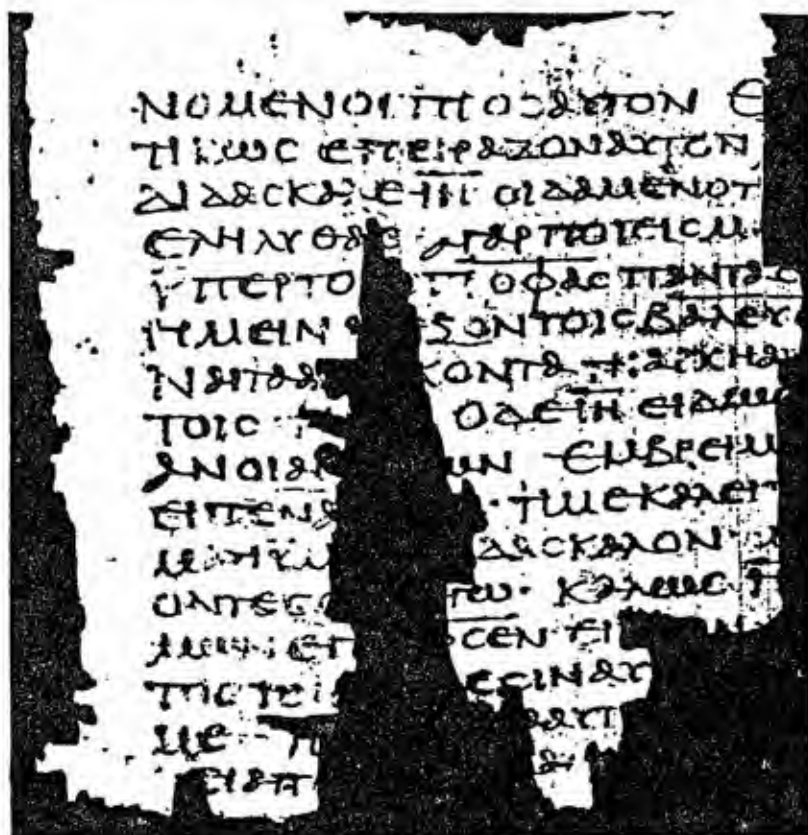 ΝΟΜΕΝΟΙ ΠΡΟΣ ΑΥΤΟΝ Ε
ΤΙΚΩϹ ΕΠΕΙΡΑΖΟΝ ΑΥΤΟΝ
ΔΙΔΑϹΚΑΛΕ ΙΗ ΟΙΔΑΜΕΝ ΟΤ
ΕΛΗΛΥΘΑϹ Α ΓΑΡ ΠΟΙΕΙϹ Μ
ΥΠΕΡ ΤΟ Π ΟΦΑϹ ΠΑΝΤΑϹ
ΗΜΕΙΝ ΕΞΟΝ ΤΟΙϹ ΒΑΛΕΥ
ΝΑΙ ΤΑ Α ΚΟΝΤΑ ΤΗ ΑΡΧΗ Α
ΤΟΙϹ Η Ο ΔΕ ΙΗ ΕΙΔΩϹ
ΑΝΟΙΑΝ ΩΝ ΕΜΒΡΕΙΜ
ΕΙΠΕΝ Α ΤΙ ΜΕ ΚΑΛΕΙΤ
Μ ΤΙ ΥΜ ΔΑϹΚΑΛΟΝ Μ
ΟΝΤΕϹ Ο ΓΩ ΚΑΛΩϹ Η
ΜΩΝ ΕΠ ΦϹΕΝ ΕΙΠΩΝ
ΤΟϹ ΤΟΙϹ ΕϹΙΝ ΑΥ
ΜΕ Η ΑΥΤ
ΕΙ ΑΠ Α